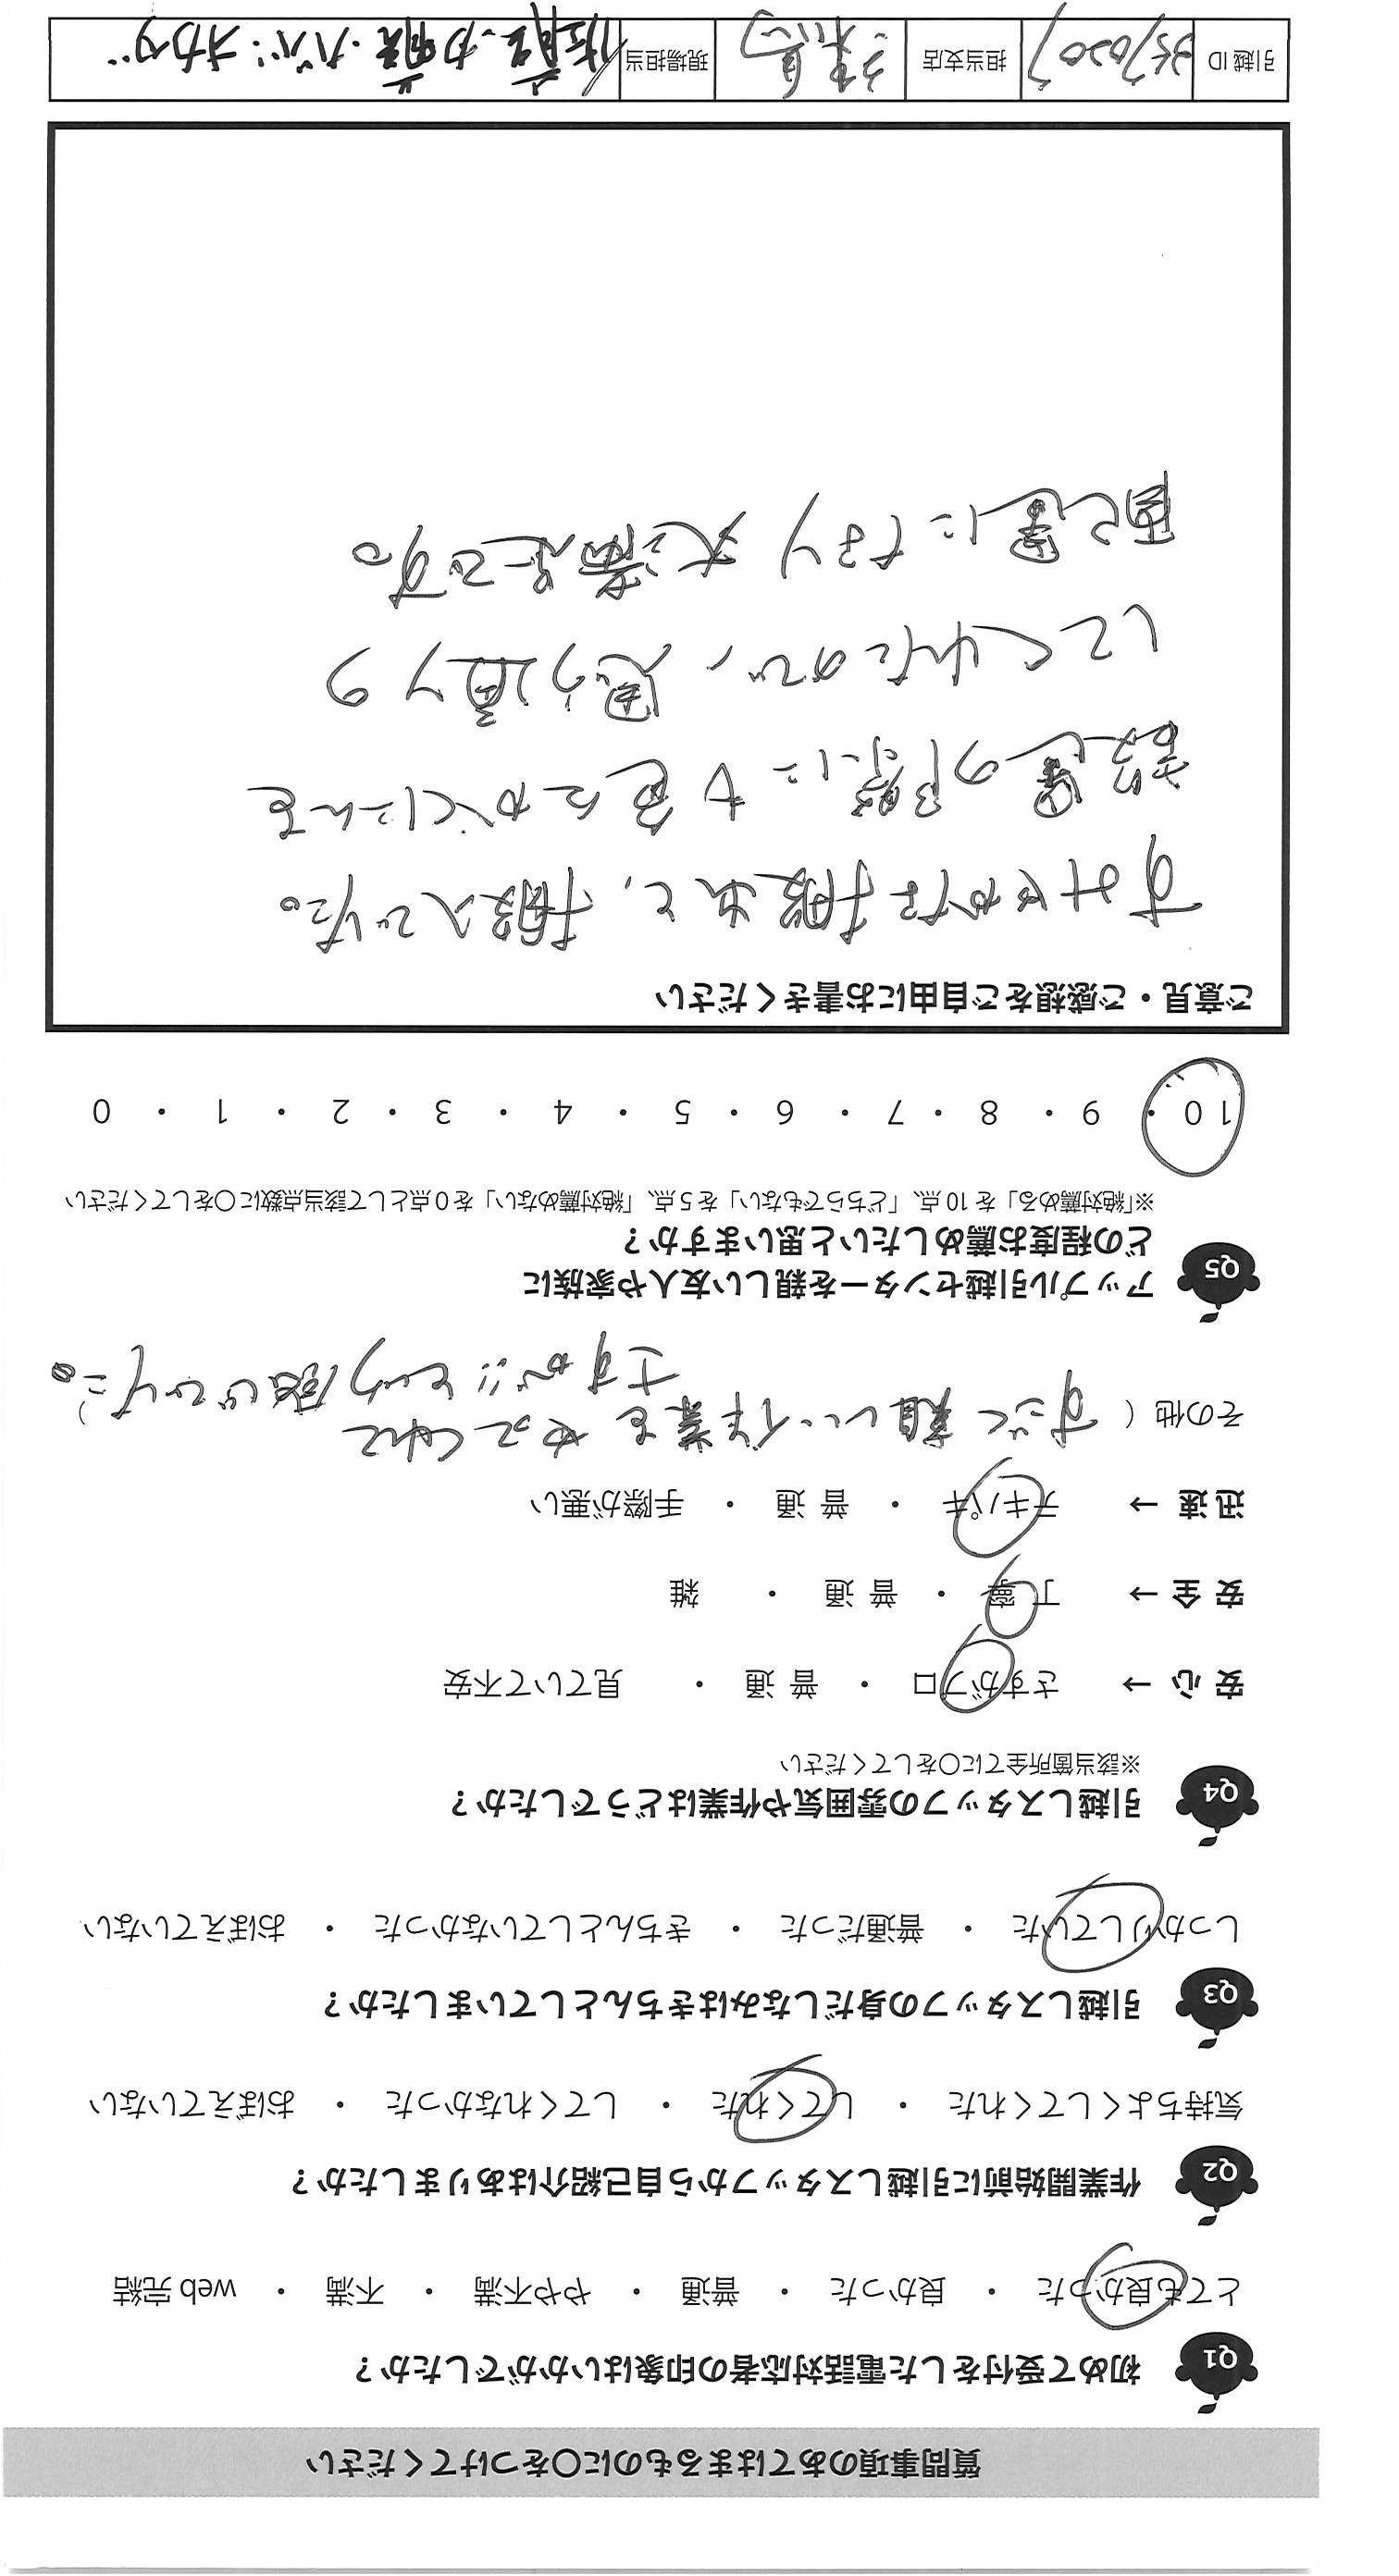 質問事項のあてはまるものに〇をつけてください
Q1 初めて受付をした電話対応者の印象はいかがでしたか？
とても良かった ・ 良かった ・ 普通 ・ やや不満 ・ 不満 ・ web 完結
Q2 作業開始前に引越しスタッフから自己紹介はありましたか？
気持ちよくしてくれた ・ してくれた ・ してくれなかった ・ おぼえていない
Q3 引越しスタッフの身だしなみはきちんとしていましたか？
しっかりしていた ・ 普通だった ・ きちんとしていなかった ・ おぼえていない
Q4 引越しスタッフの雰囲気や作業はどうでしたか？
※該当箇所全てに〇をしてください
安心 → さすがプロ ・ 普通 ・ 見ていて不安
安全 → 丁寧 ・ 普通 ・ 雑
迅速 → テキパキ ・ 普通 ・ 手際が悪い
その他（ すごく難しい作業をやってくれて
さすが!!という感じでした。）
Q5 アップル引越センターを親しい友人や家族に
どの程度お薦めしたいと思いますか？
※「絶対薦める」を 10 点、「どちらでもない」を 5 点、「絶対薦めない」を 0 点として該当点数に〇をしてください
10 ・ 9 ・ 8 ・ 7 ・ 6 ・ 5 ・ 4 ・ 3 ・ 2 ・ 1 ・ 0
ご意見・ご感想をご自由にお書きください
すみやかな搬出と、搬入でした。
設置の際にも色々かくにんを
してくれたので、思う通りの
配置になり大満足です。
引越 ID 3570207 担当支店 練馬 現場担当 ババ・オカダ